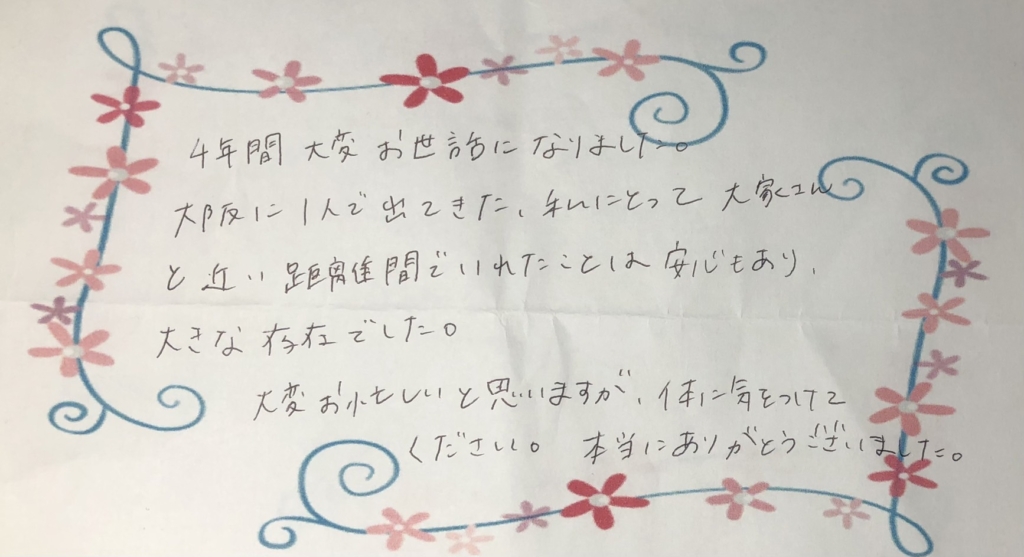 4年間 大変 お世話になりました。
大阪に1人で出てきた、私にとって 大家さん
と近い距離間でいれたことは 安心もあり、
大きな存在でした。
大変お忙しいと思いますが、体に気をつけて
ください。 本当にありがとうございました。